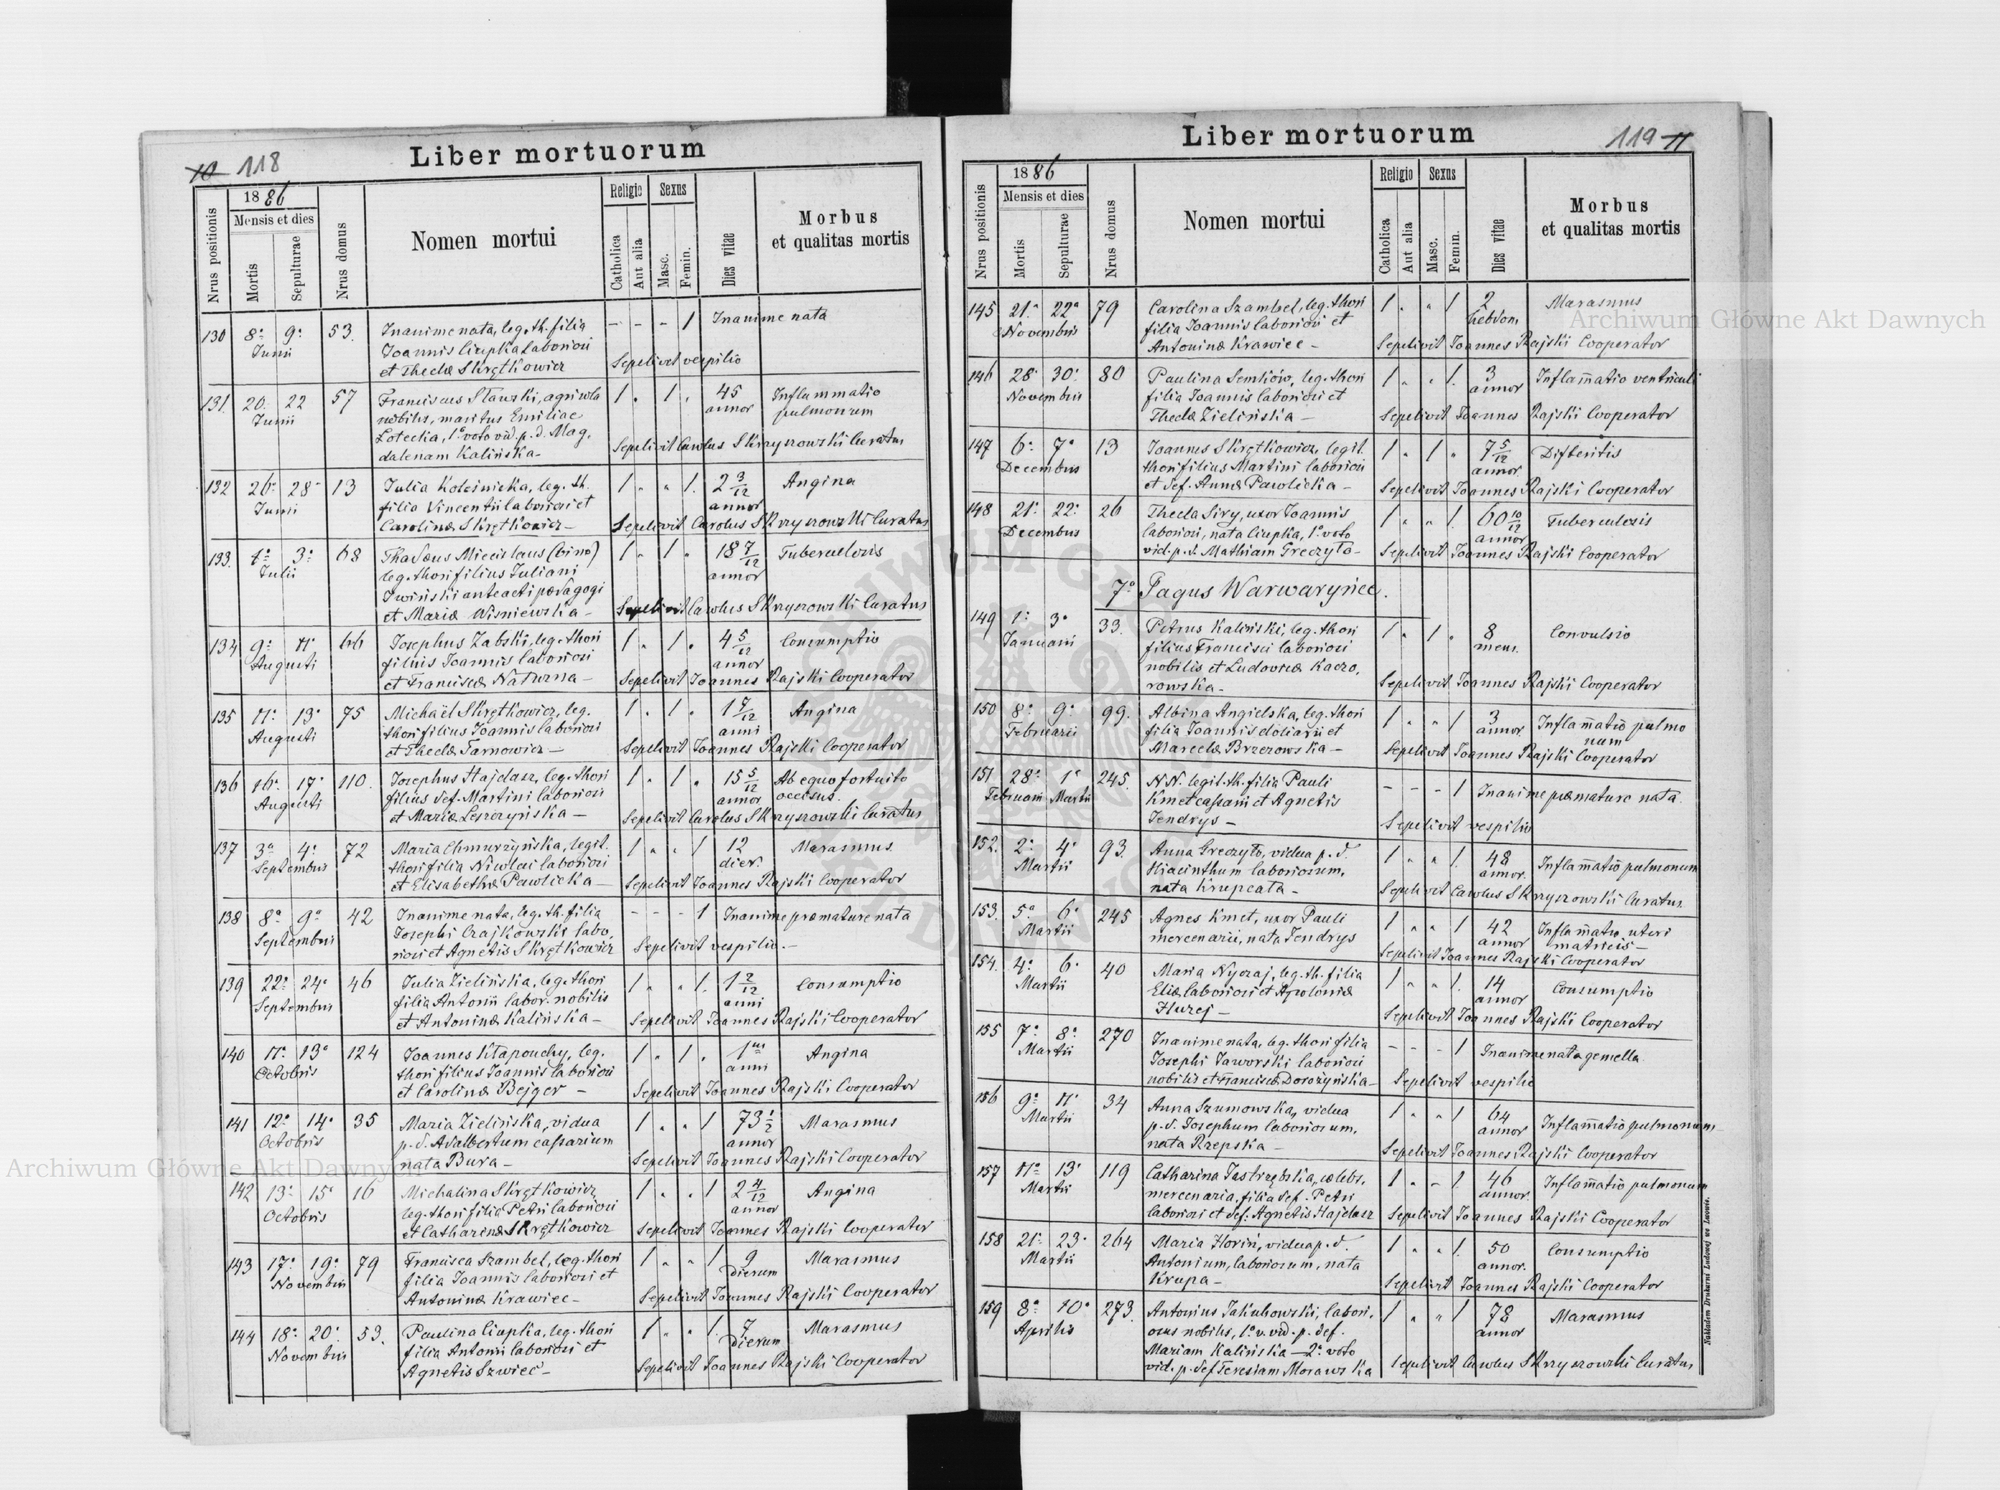 10 118
Liber mortuorum
Nrus positionis
1886
Mensis et dies
Mortis
Sepulturae
Nrus domus
Nomen mortui
Religio
Catholica
Aut alia
Sexus
Masc.
Femin.
Dies vitae
Morbus
et qualitas mortis
130 8a 9a 53. Inanime nata, leg. th. filia - - - 1 Inanime nata
Junii Joannis Ciupka laboriosi
et Theclæ Skrętkowicz Sepelivit vespilio
131 20. 22 57 Franciscus Sławski, agricola 1 . 1 . 45 Inflammatio
Junii nobilis, maritus Emiliae annor pulmonum
Lotecka, 1o voto vid. p. d. Mag,
dalenam Kalińska - Sepelivit Carolus Skrzyszowski Curatus
132 26a 28a 13 Julia Koleśnicka, leg. th. 1 . . 1. 2 3/12 Angina
Junii filia Vincentii laboriosi et annor
Carolinæ Skrętkowicz - Sepelivit Carolus Skrzyszowski Curatus
133. 1a 3a 68 Thadæus Miecislaus (bino) 1 . 1 . 18 7/12 Tuberculosis
Julii leg. thori filius Juliani annor
Iwiński anteacti pædagogi
et Mariæ Wiśniewska - Sepelivit Carolus Skrzyszowski Curatus
134 9a 11 66 Josephus Zabski, leg. thori 1 . 1 . 4 5/12 Consumptio
Augusti filius Joannis laboriosi annor
et Franciscæ Naturna - Sepelivit Joannes Rajski Cooperator
135 11a 13a 75 Michaël Skrętkowicz, leg. 1 . 1 . 1 7/12 Angina
Augusti thori filius Joannis laboriosi anni
et Theclæ Tarnowicz - Sepelivit Joannes Rajski Cooperator
136 16a 17a 110. Josephus Hajdasz, leg. thori 1 . 1 . 15 5/12 Ab equo fortuito
Augusti filius def. Martini laboriosi annor occisus.
et Mariæ Leszczyńska - Sepelivit Carolus Skrzyszowski Curatus
137 3a 4a 72 Maria Chmurzyńska, legit. 1 . . 1 12 Marasmus
Septembris thori filia Nicolai laboriosi dier.
et Elisabethæ Pawlicka - Sepelivit Joannes Rajski Cooperator
138 8a 9a 42 Inanime nata, leg. th. filia - - - 1 Inanime præmature nata
Septembris Josephi Czajkowski labo,
riosi et Agnetis Skrętkowicz Sepelivit vespilio. -
139 22a 24a 46 Julia Zielińska, leg. thori 1 . . 1. 1 2/12 Consumptio
Septembris filia Antonii labor. nobilis anni
et Antoninæ Kalińska - Sepelivit Joannes Rajski Cooperator
140 11a 13a 124 Joannes Kłapouchy, leg. 1 . 1 . 1us Angina
Octobris thori filius Joannis laboriosi anni
et Carolinæ Bejger - Sepelivit Joannes Rajski Cooperator
141 12a 14a 35 Maria Zielińska, vidua 1 . . 1 73 1/2 Marasmus
Octobris p. d. Adalbertum cassarium annor
nata Bura - Sepelivit Joannes Rajski Cooperator
142 13a 15a 16 Michalina Skrętkowicz, 1 . . 1 2 4/12 Angina
Octobris leg. thori filia Petri laboriosi annor
et Catharinæ Skrętkowicz Sepelivit Joannes Rajski Cooperator
143 17a 19a 79 Francisca Szambel, leg. thori 1 . . 1 9 Marasmus
Novembris filia Joannis laboriosi et dierum
Antoninæ Krawiec - Sepelivit Joannes Rajski Cooperator
144 18a 20a 53. Paulina Ciupka, leg. thori 1 . . 1. 7 Marasmus
Novembris filia Antonii laboriosi et dierum
Agnetis Szwiec - Sepelivit Joannes Rajski Cooperator
Liber mortuorum
119 11
Nrus positionis
1886
Mensis et dies
Mortis
Sepulturae
Nrus domus
Nomen mortui
Religio
Catholica
Aut alia
Sexus
Masc.
Femin.
Dies vitae
Morbus
et qualitas mortis
145 21a 22a 79 Carolina Szambel, leg. thori 1 . " 1 2 Marasmus
Novembris filia Joannis laboriosi et hebdom,
Antoninæ Krawiec - Sepelivit Joannes Rajski Cooperator
146 28 30 80 Paulina Semków, leg. thori 1 . . 1. 3 Inflam̄atio ventriculi
Novembris filia Joannis laboriosi et annor
Theclæ Zielińska - Sepelivit Joannes Rajski Cooperator
147 6a 7a 13 Joannes Skrętkowicz, legit. 1 . 1 . 7 5/12 Difteritis
Decembris thori filius Martini laboriosi annor
et def. Annæ Pawlicka - Sepelivit Joannes Rajski Cooperator
148 21a 22a 26 Thecla Siry, uxor Joannis 1 . . 1. 60 10/12 Tuberculosis
Decembris laboriosi, nata Ciupka, 1o voto annor
vid. p. d. Mathiam Greczyło - Sepelivit Joannes Rajski Cooperator
7o Pagus Warwaryńce.
149 1a 3a 33. Petrus Kaliński, leg. thori 1 . 1 . 8 Convulsio
Januarii filius Francisci laboriosi mens.
nobilis et Ludovicæ Kaczo,
rowska - Sepelivit Joannes Rajski Cooperator
150 8a 9a 99. Albina Angielska, leg. thori 1 . . 1 3 Inflam̄atio pulmo
Februarii filia Joannis doliarii et annor num
Marcelæ Brzezowska - Sepelivit Joannes Rajski Cooperator
151 28a 1a 245. N. N. legit. th. filia Pauli - - - 1 Inanime præmature nata.
Februarii Martii Kmet cassarii et Agnetis
Jendrys - Sepelivit vespilio
152. 2a 4a 93. Anna Greczyło, vidua p. d. 1 . . 1. 48 Inflam̄atio pulmonum
Martii Hiacinthum laboriosum, annor.
nata Krupcata - Sepelivit Carolus Skrzyszowski Curatus
153. 5a 6a 245 Agnes Kmet, uxor Pauli 1 . . 1 42 Inflam̄atio uteri
Martii mercenarii, nata Jendrys annor matricis -
Sepelivit Joannes Rajski Cooperator
154. 4a 6a 40 Maria Nyczaj, leg. th. filia 1 . . 1. 14 Consumptio
Martii Eliæ laboriosi et Apoloniæ annor
Huzej - Sepelivit Joannes Rajski Cooperator
155 7a 8a 270 Inanime nata, leg. thori filia - - - 1 Inanime nata gemella
Martii Josephi Jaworski laboriosi
nobilis et Franciscæ Dorożyńska - Sepelivit vespilio
156 9a 11a 34 Anna Szumowska, vidua 1 . . 1 64 Inflam̄atio pulmonum -
Martii p. d. Josephum laboriosum, annor
nata Rzepska - Sepelivit Joannes Rajski Cooperator
157 11a 13a 119 Catharina Jastrzębska, cœlebs, 1 . - 1 46 Inflam̄atio pulmonum
Martii mercenaria, filia def. Petri annor.
laboriosi et def. Agnetis Hajdasz Sepelivit Joannes Rajski Cooperator
158 21a 23a 264 Maria Horiń, vidua p. d. 1 . . 1. 50 Consumptio
Martii Antonium, laboriosum, nata annor.
Krupa - Sepelivit Joannes Rajski Cooperator
159 8a 10a 273. Antonius Jakubowski, labori, 1 . " 1 78 Marasmus
Aprilis osus nobilis, 1o v. vid. p. def. annor
Mariam Kalińska - 2o voto
vid. p. def Teresiam Morawska Sepelivit Carolus Skrzyszowski Curatus,
Nakładem Drukarni Ludowej we Lwowie.
Archiwum Główne Akt Dawnych
Archiwum Główne Akt Dawnych